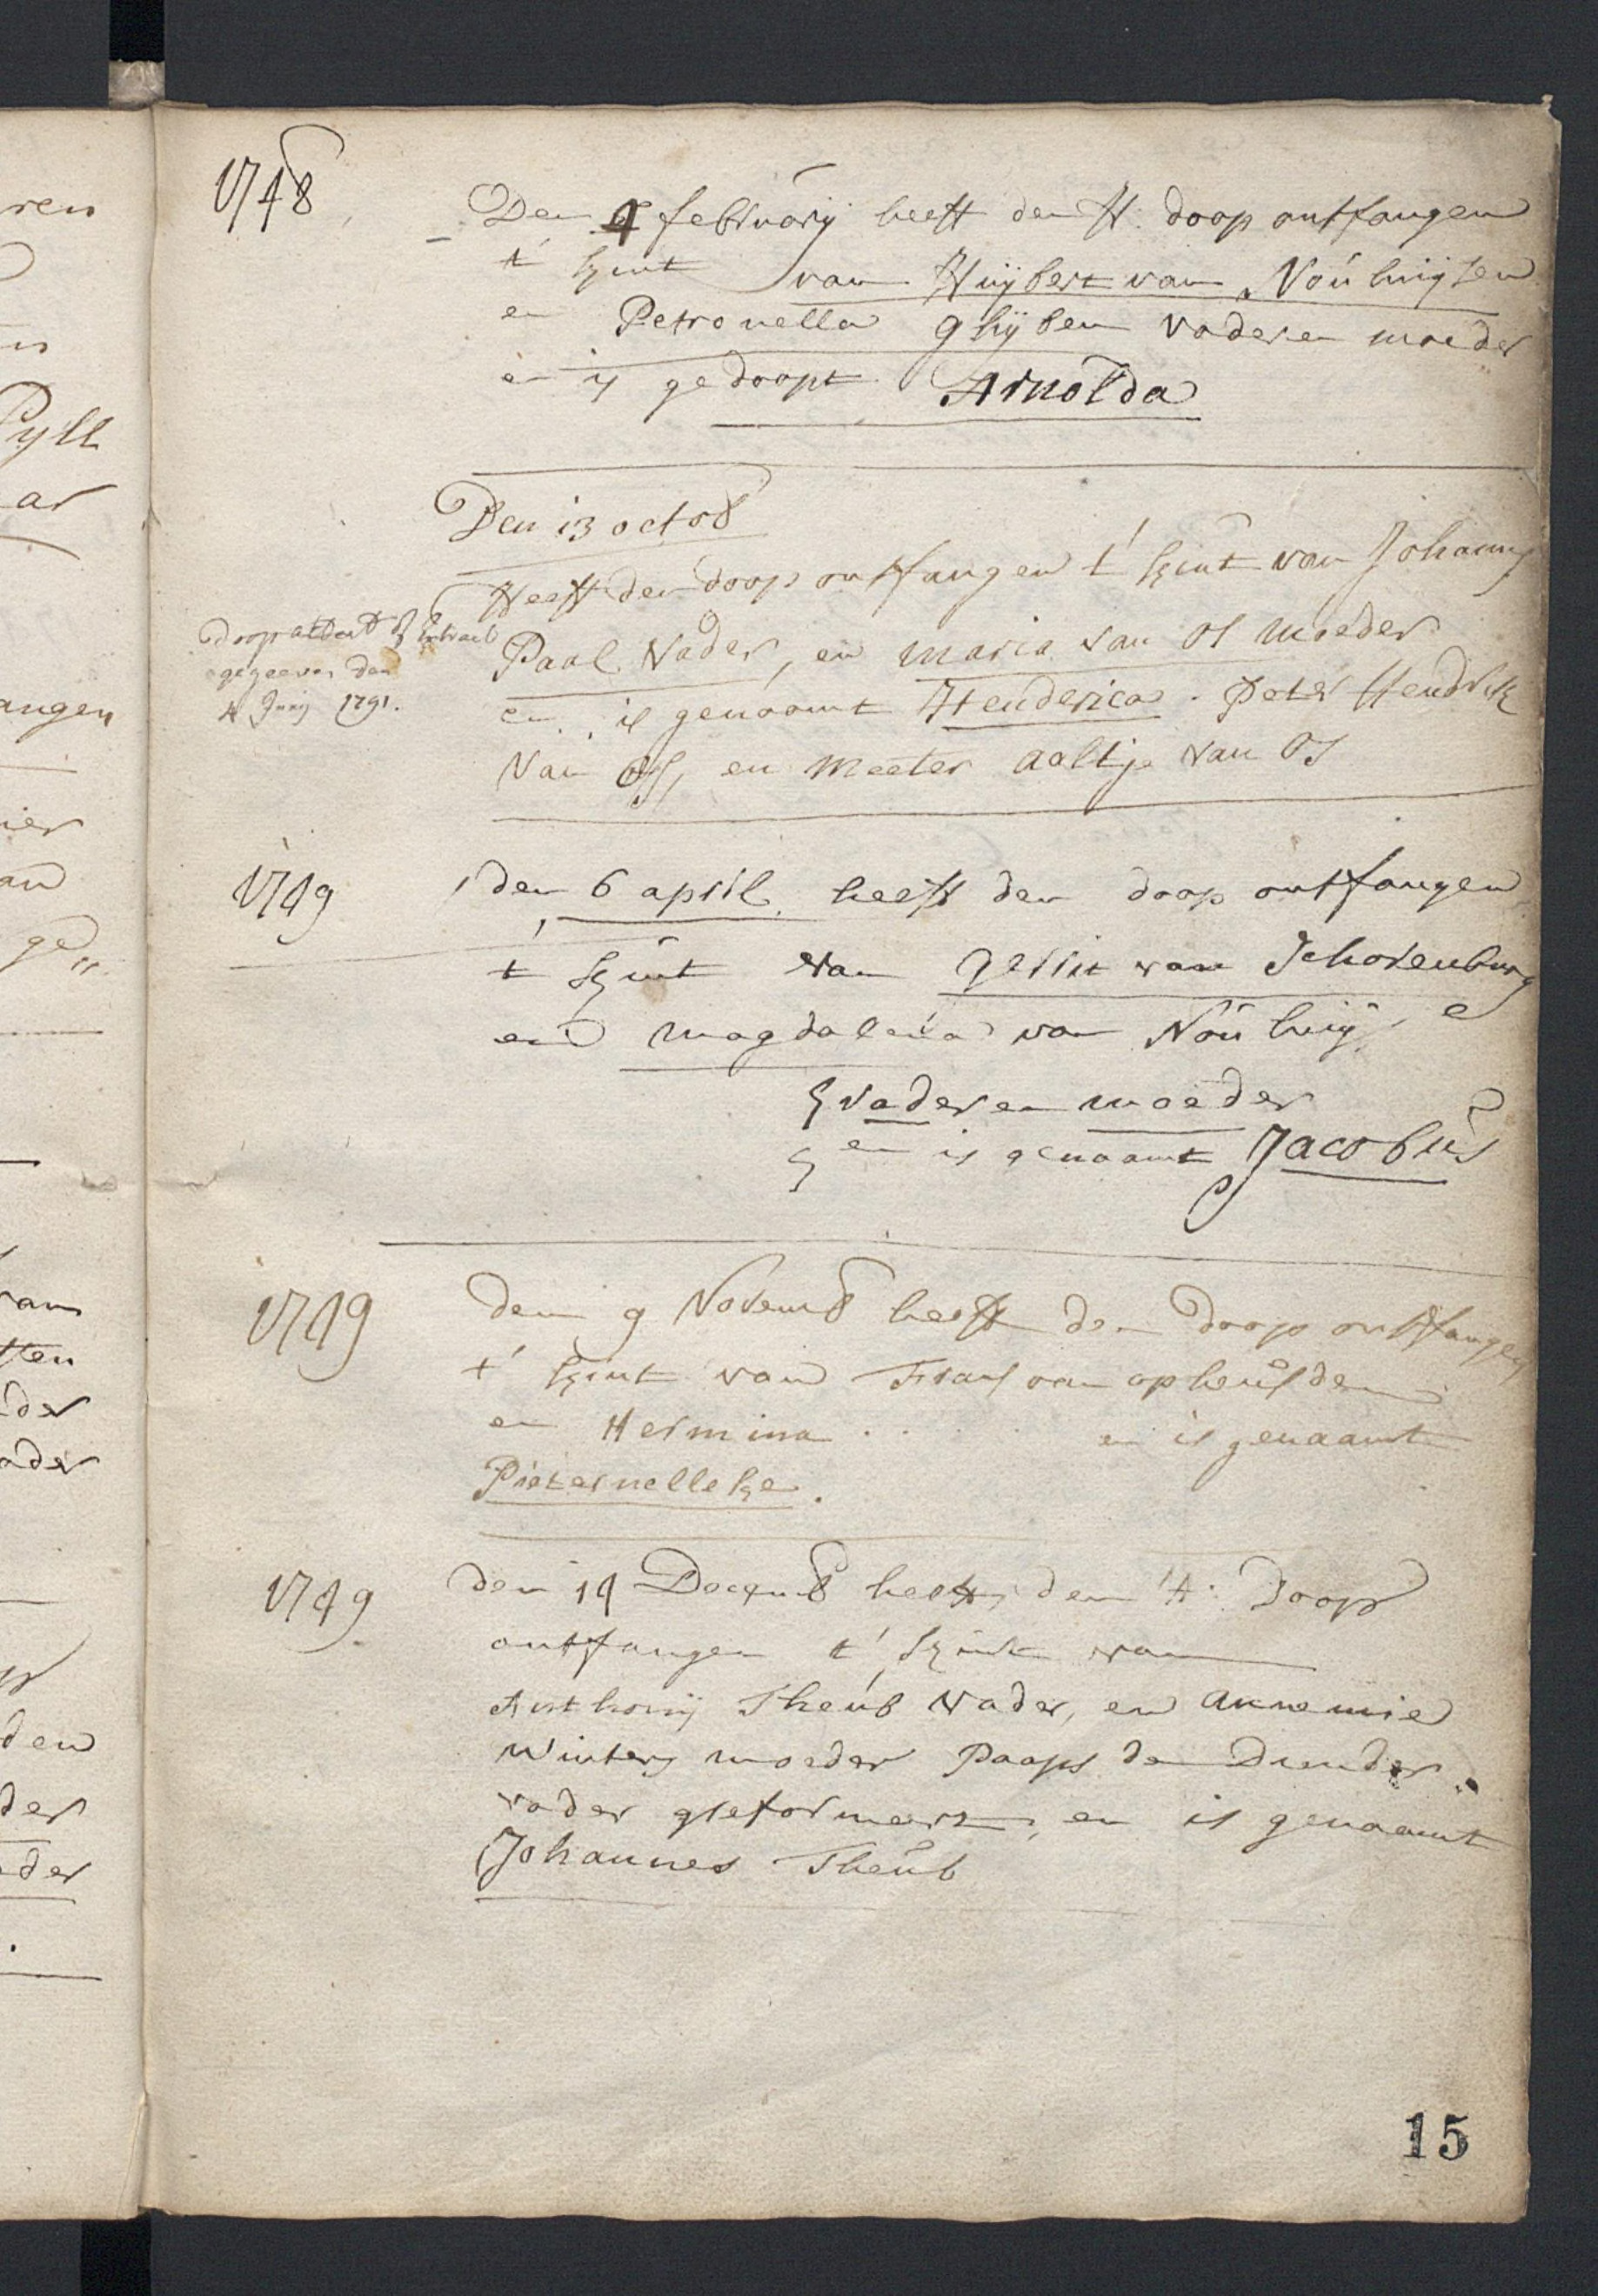 1748
Den 4 februarij heeft den H. doop ontfangen
t' kint van Huijbert van Nóúhúijsen
en Petronella ghijben vader en moeder
en is gedoopt Arnolda
Den 13 octob
Heeft den doop ontfangen t' kint van Johannis
Paal Vader, en maria van Os moeder
en is genaamt Henderica. Peter Hendrik
Van Oss, en Meeter Aaltje van Os
doop
gegeeven den
4 Junij 1791.
1749
den 6 april heeft den doop ontfangen
t' kint van gerrit van Schovenburg
en magdalena van Nóúhuijse
vader en moeder
en is genaamt Jacobús
1749
den 9 Novemb heeft den doop ontfangen
t' kint van Frans van opheúsden
en Hermina . . . . en is genaamt
Pieternelleke.
1749
den 14 Decemb heeft den H. Doop
ontfangen t' kint van
Anthonij Theúb vader, en Annemie
Winters moeder Paaps de
vader greformeert, en is genaamt
Johannes Theúb
15
ren
Pyll
ar
angen
ier
an
ge„
van
tten
der
ader
den
der
der